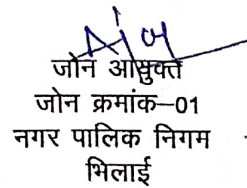 जोन आयुक्त
जोन क्रमांक–01
नगर पालिक निगम
भिलाई